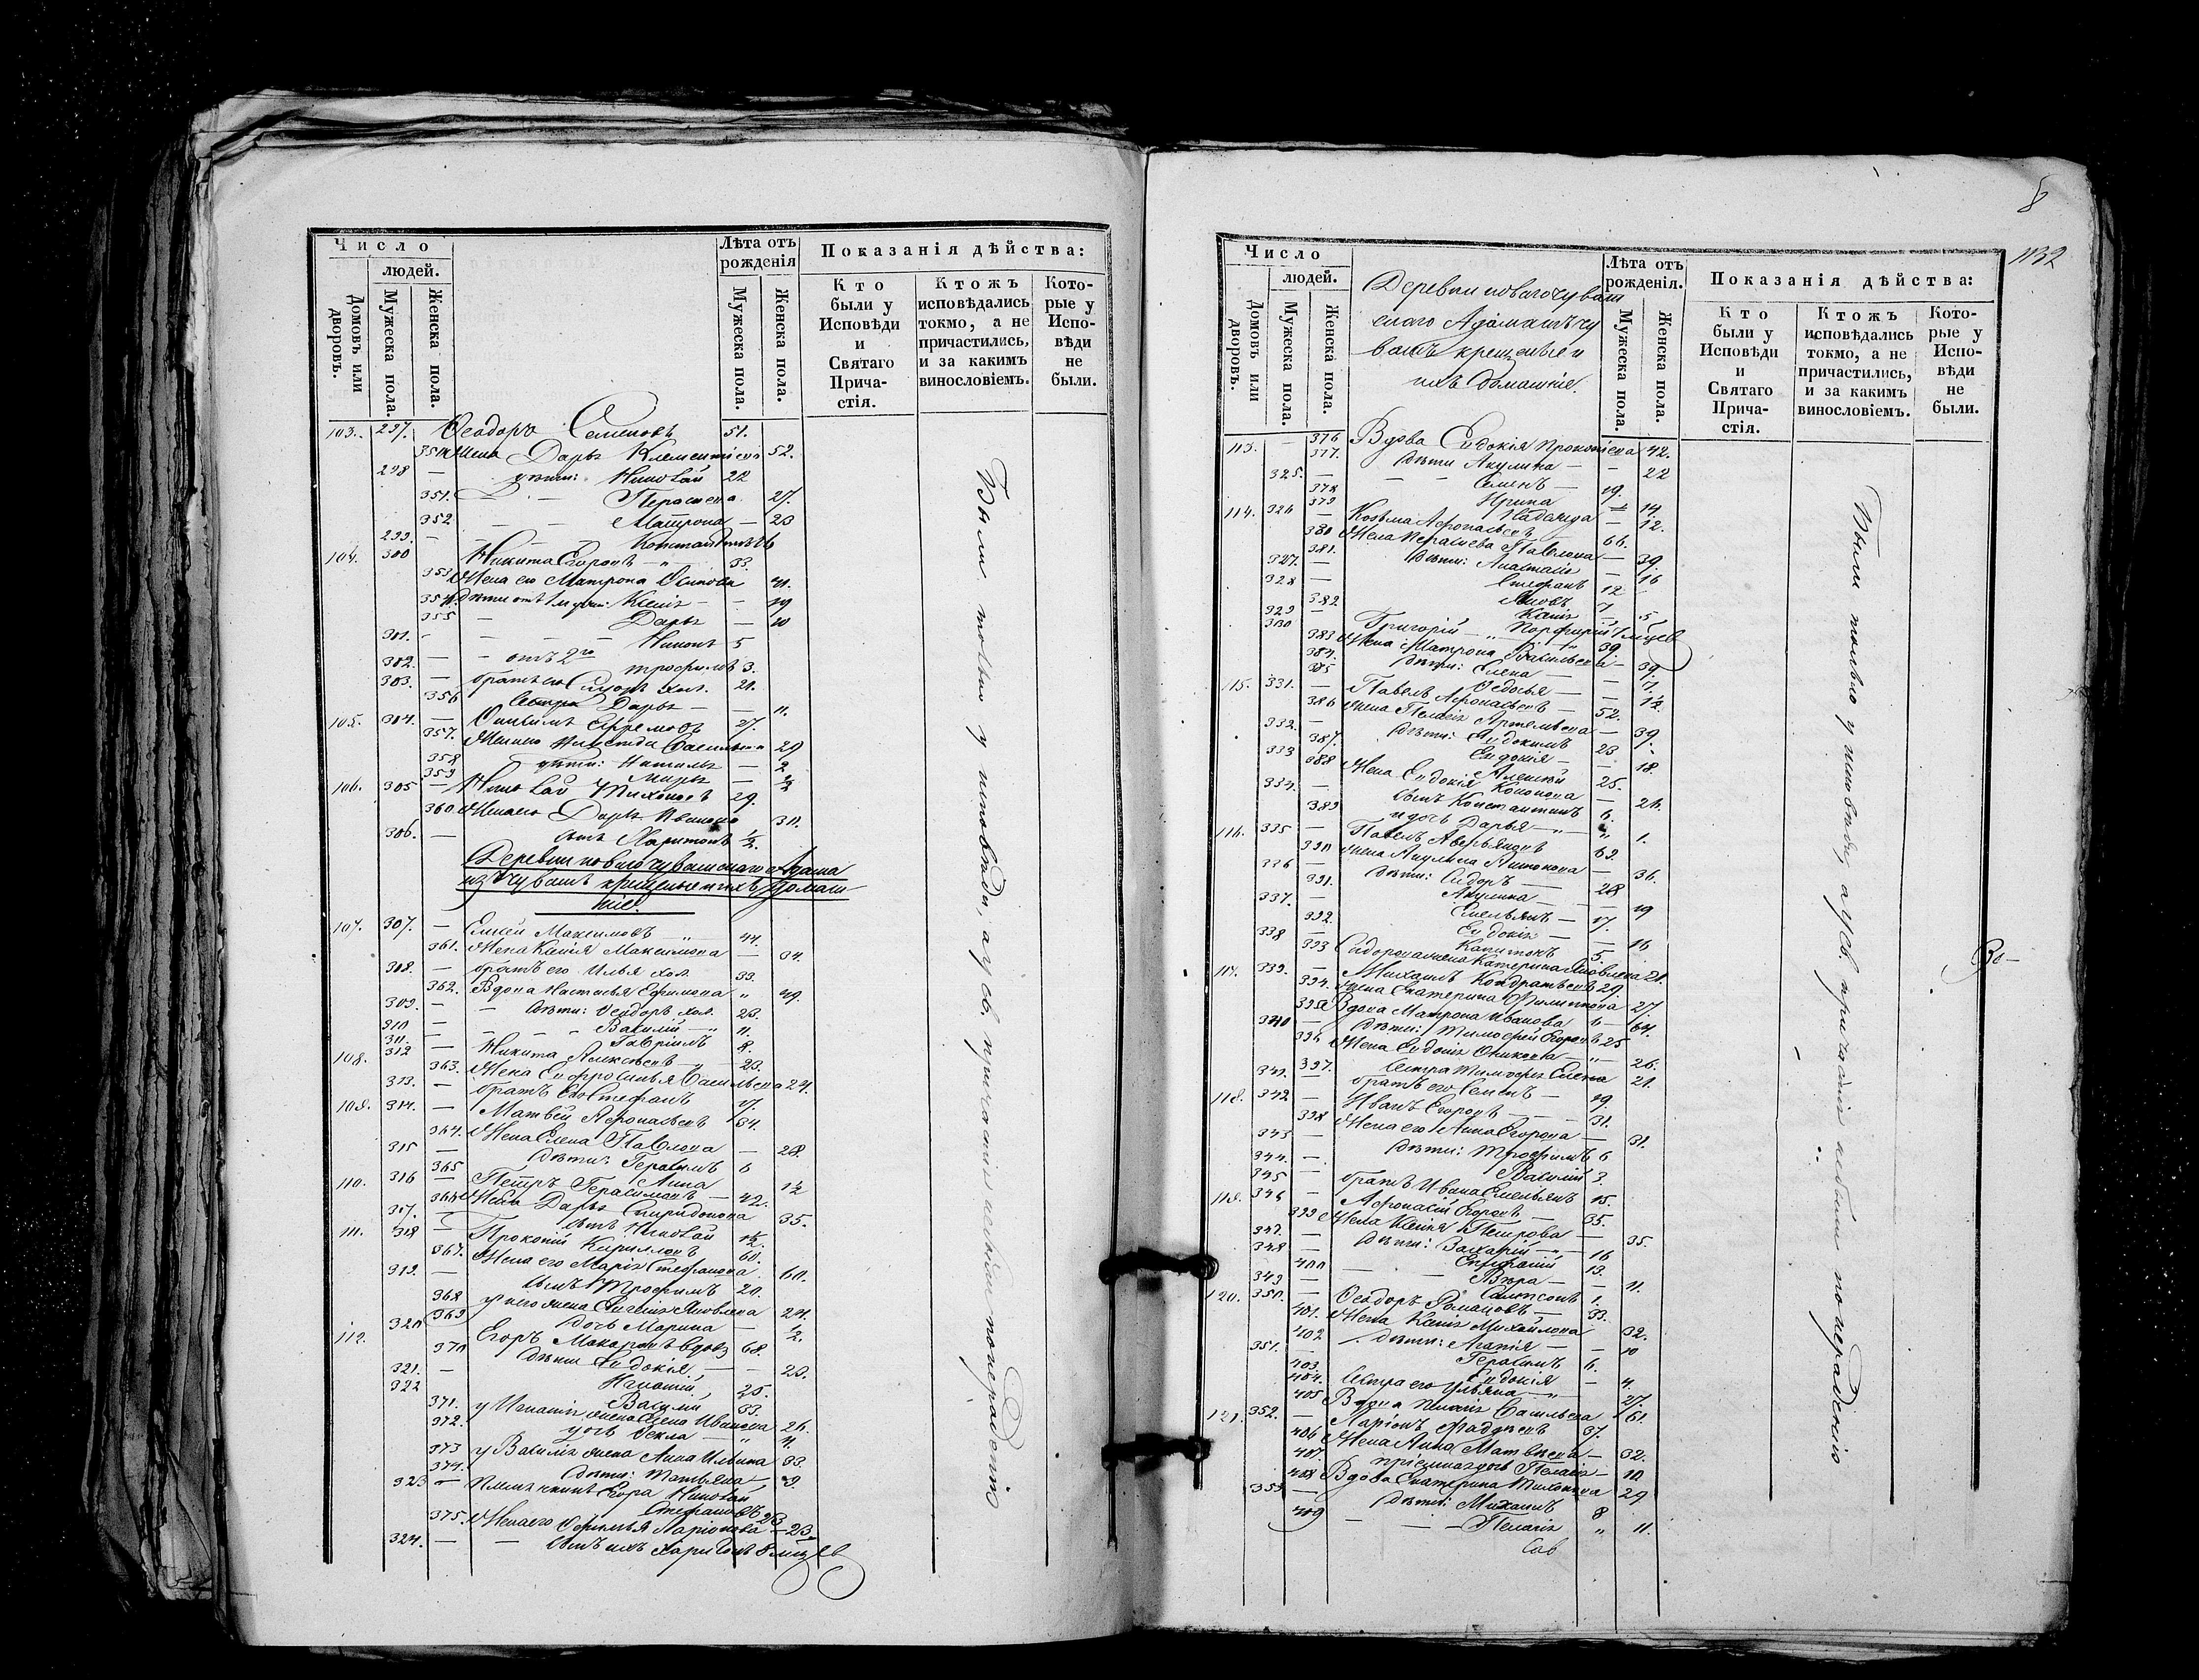 Число
людей.
Домовъ или дворовъ.
Мужеска пола.
Женска пола.
Лѣта отъ рожденія
Мужеска пола.
Женска пола.
Показанія дѣйства:
Кто были у Исповѣди и Святаго Причастія.
Ктожъ исповѣдались токмо, а не причастились, и за какимъ винословіемъ.
Которые у Исповѣди не были.
103. 297. Ѳеодоръ Семеновъ 51.
350 Жена Дарья Клементіева 52.
298 — дѣти: Николай 22
351. Параскева 27.
352 — Матрона — 23
299. — Константинъ 16
104. 300 Никита Егоровъ — 33.
353 Жена его Матрона Осипова 41.
354 Дѣти отъ 1 мужа: Ксенія — 19
355 — Дарья — 10
301. — Никонъ 5
302. — отъ 2го Трофимъ 3.
303. — братъ его хол. 21.
356 Сестра Дарья — 11.
105. 304. — Ефремовъ 27.
357. Васильева 29
358 дѣти: — 2
359 — 1/2
106. 305 — Николай Тихоновъ 29.
360. Жена его Дарья Иванова 30.
306. — сынъ Харитонъ 1/2.
Деревни новаго чувашскаго Адама
изъ чувашъ крещеные и ихъ домаш
ніе.
107. 307. — Елисей Максимовъ — 44.
361. Жена Ксенія Максимова — 34.
308. — братъ его Илья хол. 33.
362. Вдова Настасья Ефимова " 49.
309. — Дѣти: Ѳеодоръ хол. 23.
310 — Василій — 11.
311. — Гавріилъ 8.
108. 312 — Никита Алексѣевъ — 23.
363. Жена Ефросинья Васильева 24.
313. — братъ его Стефанъ 17.
109. 314. — Матвѣй Аѳонасьевъ 34.
364. Жена Елена Павлова — 28.
315 — Дѣти: Герасимъ 6
365 Анна 1/2
110. 316 — Петръ Герасимовъ — 42.
366 Жена Дарья Спиридонова 35.
317. — сынъ Николай 1/2.
111. 318 — Прокопій Кирилловъ 60.
367. Жена его Марія Стефанова 60.
319. — сынъ Трофимъ 20.
368 у него жена Евгенія Яковлева 21.
369 дочь Марина — 1/2.
112. 320 Егоръ Макаровъ вдовъ 68.
370 Дѣти Евдокія — 20.
321. — Игнатій 25.
322 Василій 33.
371. у Игнатія жена Елена Иванова 26.
372. дочь Ѳекла — 4.
373 у Василія жена Анна Ильина 33.
374. Дѣти: Татьяна — 9.
323 — Племянникъ Егора Николай
Стефановъ 23
375. Жена его Ларіонова — 23.
324. — — сынъ ихъ 8 мцевъ
Были только у исповѣди, а у св. причастія не были по нерадѣнію
8
1132
Число
людей.
Домовъ или дворовъ.
Мужеска пола.
Женска пола.
Деревни новаго чуваш
скаго Адама изъ чу
вашъ крещеные и
ихъ домашніе.
Лѣта отъ рожденія.
Мужеска пола.
Женска пола.
Показанія дѣйства:
Кто были у Исповѣди и Святаго Причастія.
Ктожъ исповѣдались токмо, а не причастились, и за какимъ винословіемъ.
Которые у Исповѣди не были.
113. — 376 Вдова Евдокія Прокопіева 42.
377. Дѣти Акулина — 22
325. — Семенъ — 19.
378 Ирина — 14.
379 Надежда — 12.
114. 326 — Козьма Аѳонасьевъ 66.
380 Жена Параскева Павлова — 39.
381. Дѣти: Анастасія — 16
327. — Стефанъ 12
328 — Яковъ 7
382 Ксенія — 5
329 — Порфирій 7 мцев
330 Григорій — 39
383 Жена Матрона Васильева — 39.
384. Дѣти: Елена — 7.
385 Ѳедосья — 1/2.
115. 331. — Павелъ Аѳонасьевъ — 52.
386 Жена Пелагія Артемьева — 39.
332. — Дѣти: Евдокимъ 23
387. Евдокія — 18.
333 Алексѣй 25.
388 Жена Евдокія Кононова — 21.
334. — сынъ Константинъ 6.
389 и дочь Дарья — " 1.
116. 335 — Павелъ Аверьяновъ 63.
390 Жена Акулина — 36.
336 — Дѣти: Сидоръ — 28
391. Акулина — 19
337. — Емельянъ — 17.
392. Евдокія — 16
338 — Капитонъ 5.
393 Сидорова жена Катерина Яковлева 21.
117. 339. — Михаилъ Кондратьевъ 29.
394. Жена Екатерина Филиппова 27.
395 Вдова Матрона Иванова — 64.
340 — Дѣти: Тимофей Егоровъ 25
396 Жена Евдокія — 26.
397. Сестра Тимофея Елена 21.
341. — братъ его Семенъ — 19.
118. 342 — Иванъ Егоровъ — 31.
398 Жена его Анна Егорова — 31.
343 — Дѣти: Трофимъ 6
344. — Василій 3.
345 братъ Ивана Емельянъ 15.
119. 346 — Аѳонасій Егоровъ — 35.
399 Жена Ксенія Петрова — 35.
347. — Дѣти: Захарій — 16
348 — 13.
400 — 11.
349 — Самсонъ 1.
120. 350. — Ѳеодоръ Романовъ — 33.
401. Жена Ксенія Михайлова 32.
402 — Дѣти: Агапія — 10
351. — Герасимъ 6.
403. Евдокія — 4.
404. Сестра его Ульяна — 27.
405 Вдова Пелагія Васильева 61.
121. 352. — Ларіонъ Фадѣевъ 37.
406 Жена Анна Матвѣева — 32.
407. пріемная дочь Пелагія — 10
408 Вдова Екатерина Тихонова 29
353 — Дѣти: Михаилъ 8
409 — — Пелагія " 11.
Сав
Были только у исповѣди, а у св. причастія не были по нерадѣнію
Во—